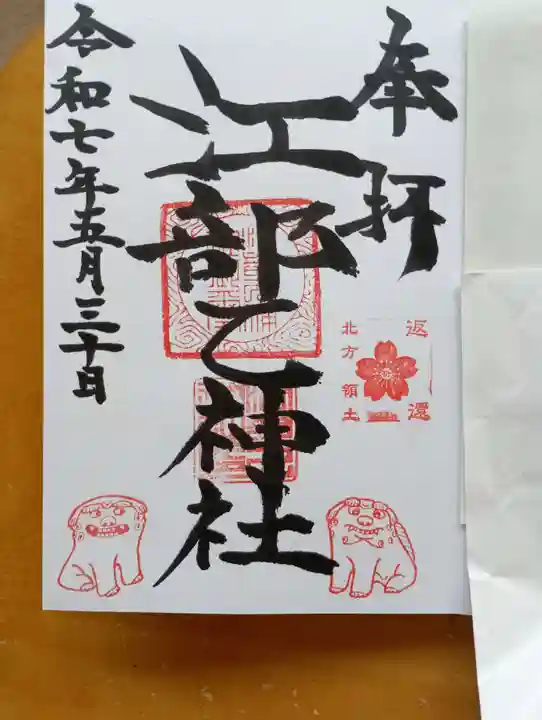 奉拝
江部乙神社
返還
北方領土
令和七年五月三十日